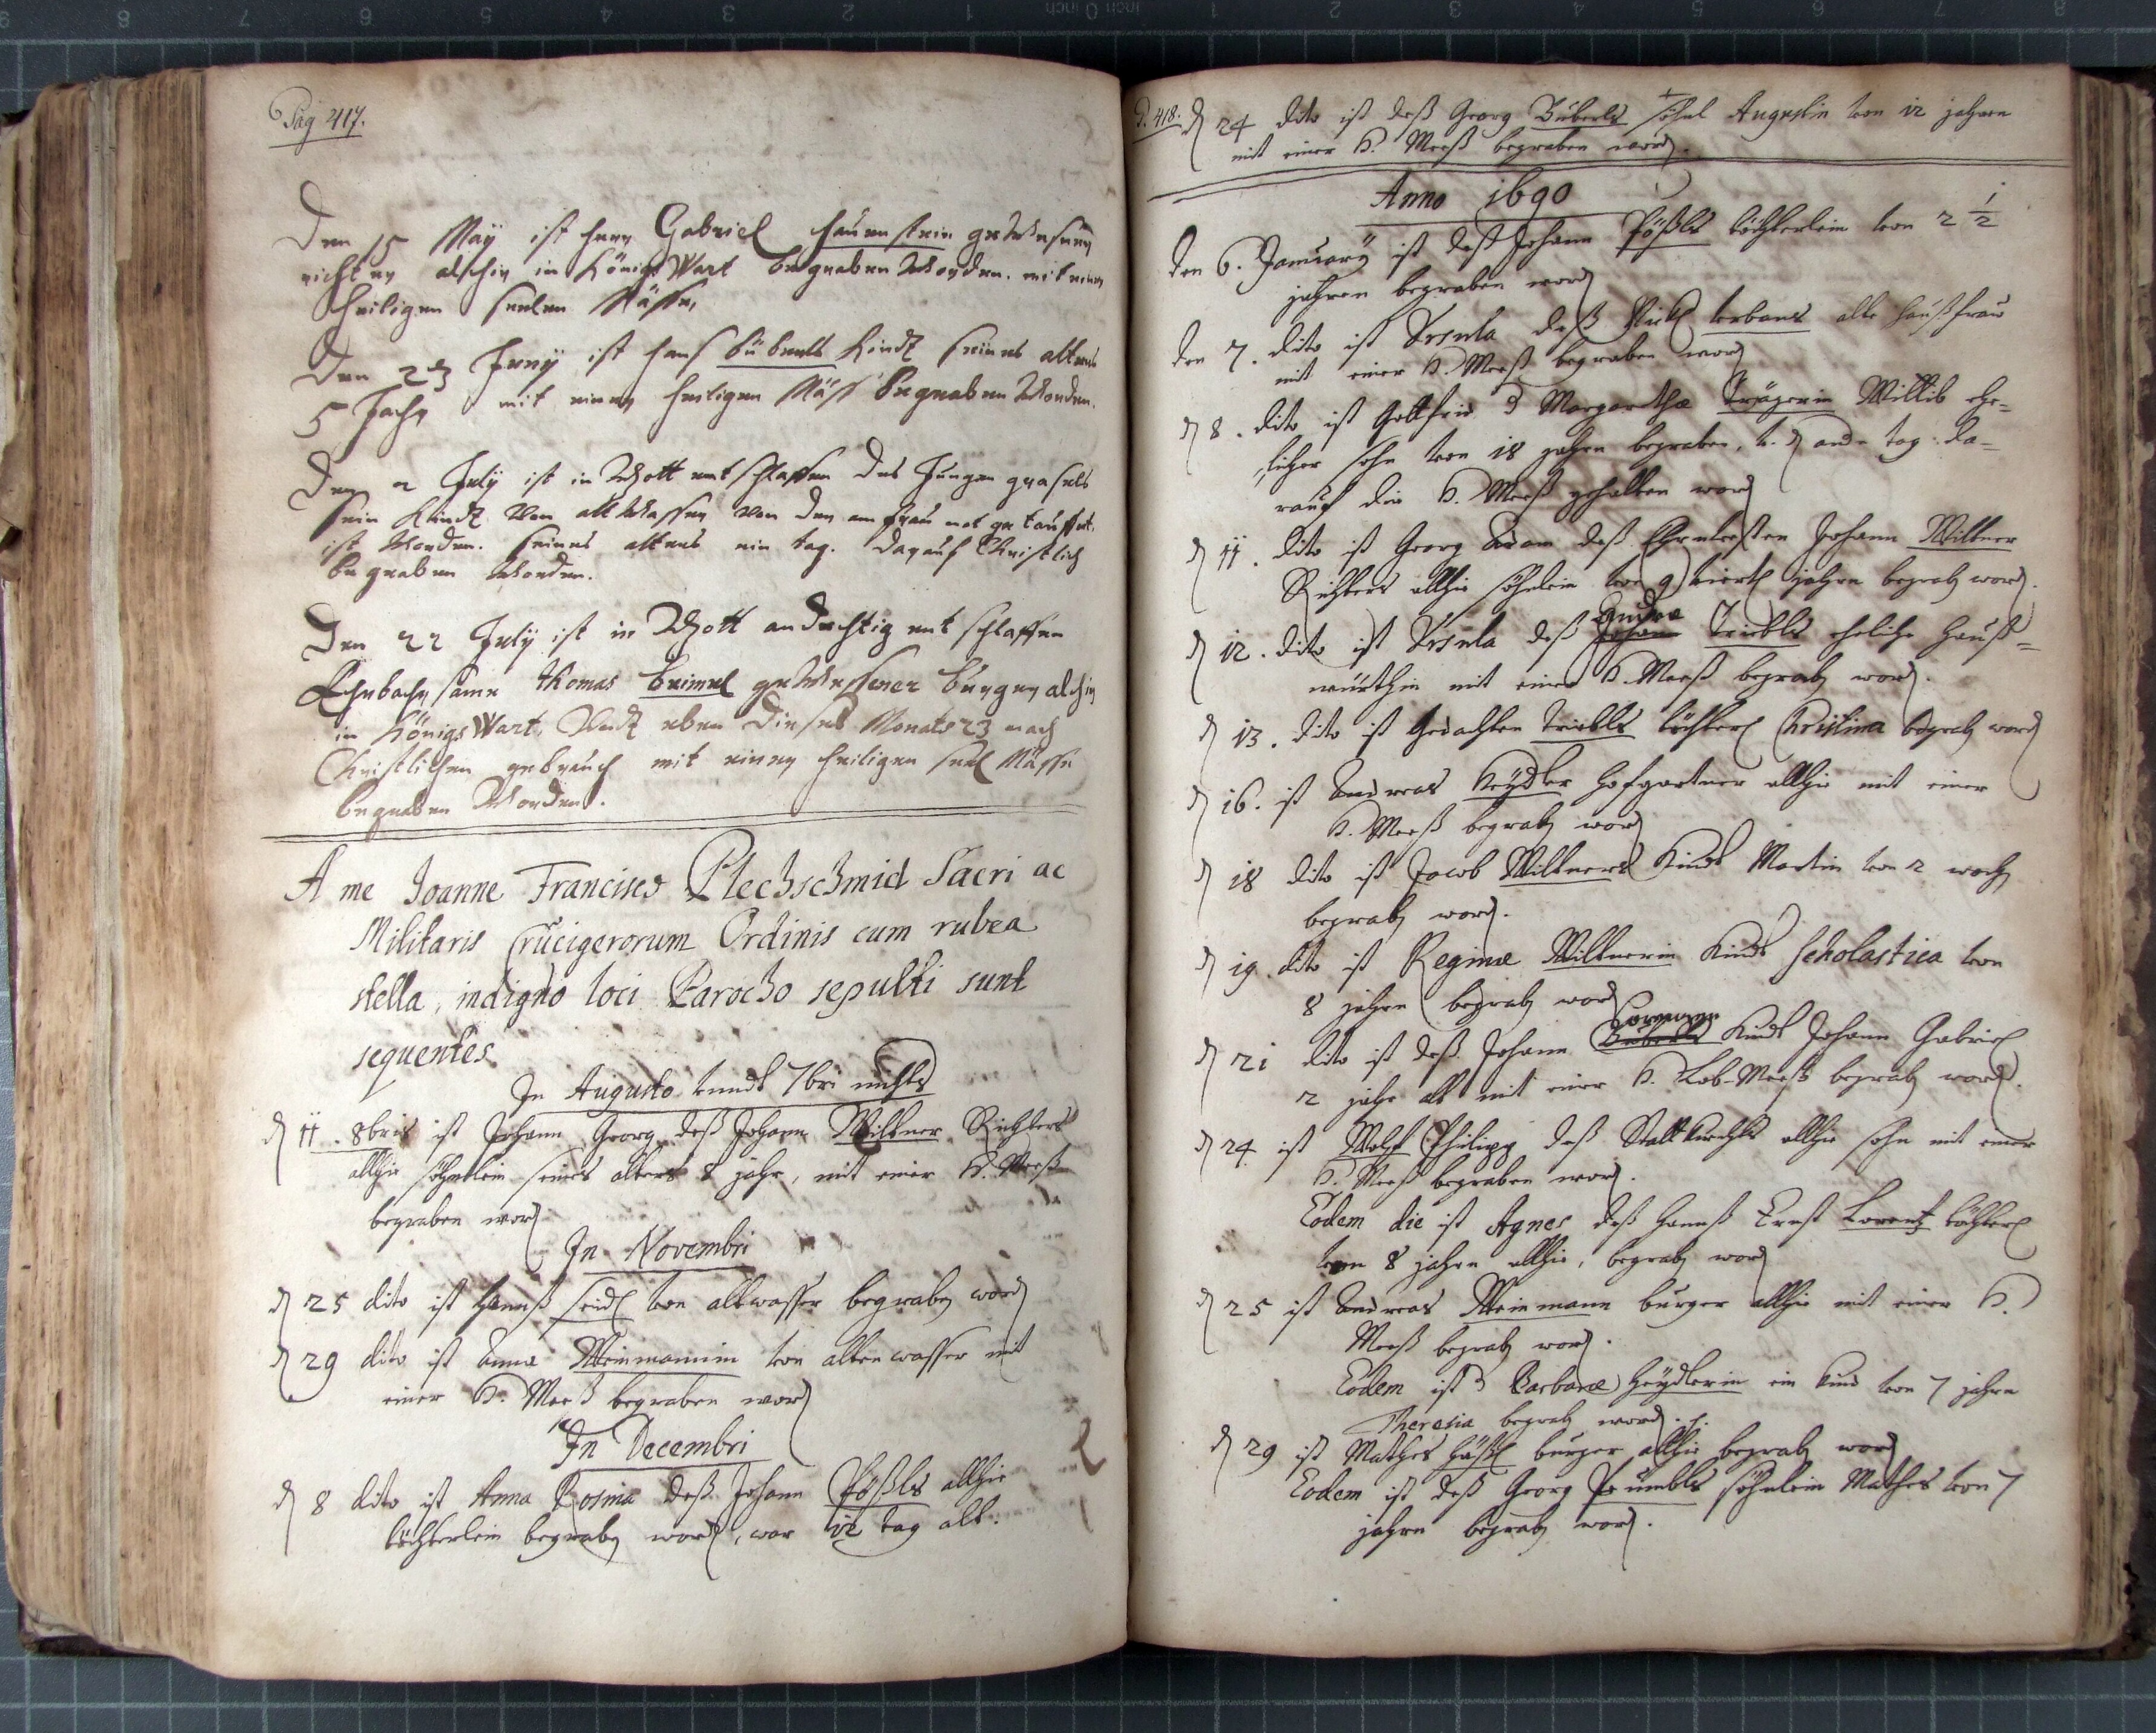 Pag 417.
Den 15 Maÿ ist herr Gabriel hauenstein gewesener
richter alhier in Königs Wart begraben worden. mit einer
heiligen seelen Mässe,
Den 23 Juny ist hanß büberls Kindt seines alters
5 Jahr mit einer heiligen Mäss begraben worden.
Den 2 July ist in Gott entschlaffen des Jungen
sein Kindt von altwasser von der am frau not getaufft
ist worden. seines alters ein tag. darauf Christlich
begraben worden.
Den 22 July ist in Gott andechtig entschlaffen
Ehrbahr same thomas beimel gewessener burger alhier
in Königs Wart, Undt eben dieses Monats 23 nach
Christlichen gebrauch mit einer heiligen seel Mässe
begraben worden.
A me Joanne Francisco Plechschmid Sacri ac
Militaris Crucigerorum Ordinis cum rubea
stella, indigno loci Parocho sepulti sunt
sequentes
In Augusto undt 7bri nichts
d 11. 8bris ist Johann Georg deß Johann Willner Richters
allhie söhnlein seines alters 8 jahr, mit einer H. Meeß
begraben word
In Novembri
d 25 dito ist Hannß seidl von altwasser begraben word
d 29 dito ist Anna Weinmannin von altenwasser mit
einer H. Meeß begraben word
In Decembri
d 8 dito ist Anna Rosina deß Johann Pößls allhie
töchterlein begraben word, war 12 tag alt.
P. 418. d 24 dito ist deß Georg Büberls söhnl Augustin von 12 jahren
mit einer H. Meeß begraben word.
Anno 1690
den 6. January ist deß Johann Pößls töchterlein von 2 1/2
jahren begraben word
den 7. dito ist Ursula deß Nickl urbans alte haußfrau
mit einer H. Meeß begraben word
d 8. dito ist Gottfrid d Margaretha Trägerin Wittib ehe=
licher sohn von 18 jahren begraben, u. d ander tag da=
rauf die H. Meeß gehalten word
d 11. dito ist Georg Adam deß Ehrnvesten Johann Willner
Richters allhie söhnlein von 9 viertl jahren begrab word.
Andre
d 12. dito ist Ursula deß Johann Triebls eheliche Hauß=
würthin mit einer H. Meeß begrab word.
d 13. dito ist Gedachten Triebls töchterl Christina begrab word
d 16. ist Andreas Heÿdler hofgartner allhie mit einer
H. Meeß begrab word
d 18 dito ist Jacob Willners Kindt Martin von 2 woch
begrab word.
d 19. dito ist Reginæ Willnerin Kindt Scholastica von
8 jahren begrab word
d 21 dito ist deß Johann Büberls Kindt Johann Gabriel
2 jahr alt mit einer H. Lob-Meeß begrab word.
d 24. ist Wolf Philipp deß Stattknechts allhie sohn mit einer
H. Meeß begraben word.
Eodem die ist Agnes deß Hannß Ernst Lorentz töchterl
von 8 jahren allhie, begrab word
d 25 ist Andreas Weinmann burger allhie mit einer H.
Meeß begrab word.
Eodem ist d Barbaræ Heÿdlerin ein Kind von 7 jahren
Theresia begrab word.
d 29 ist Mathes Häßl burger allhie begrab word
Eodem ist deß Georg Peümbls söhnlein Mathes von 7
jahren begrab word.